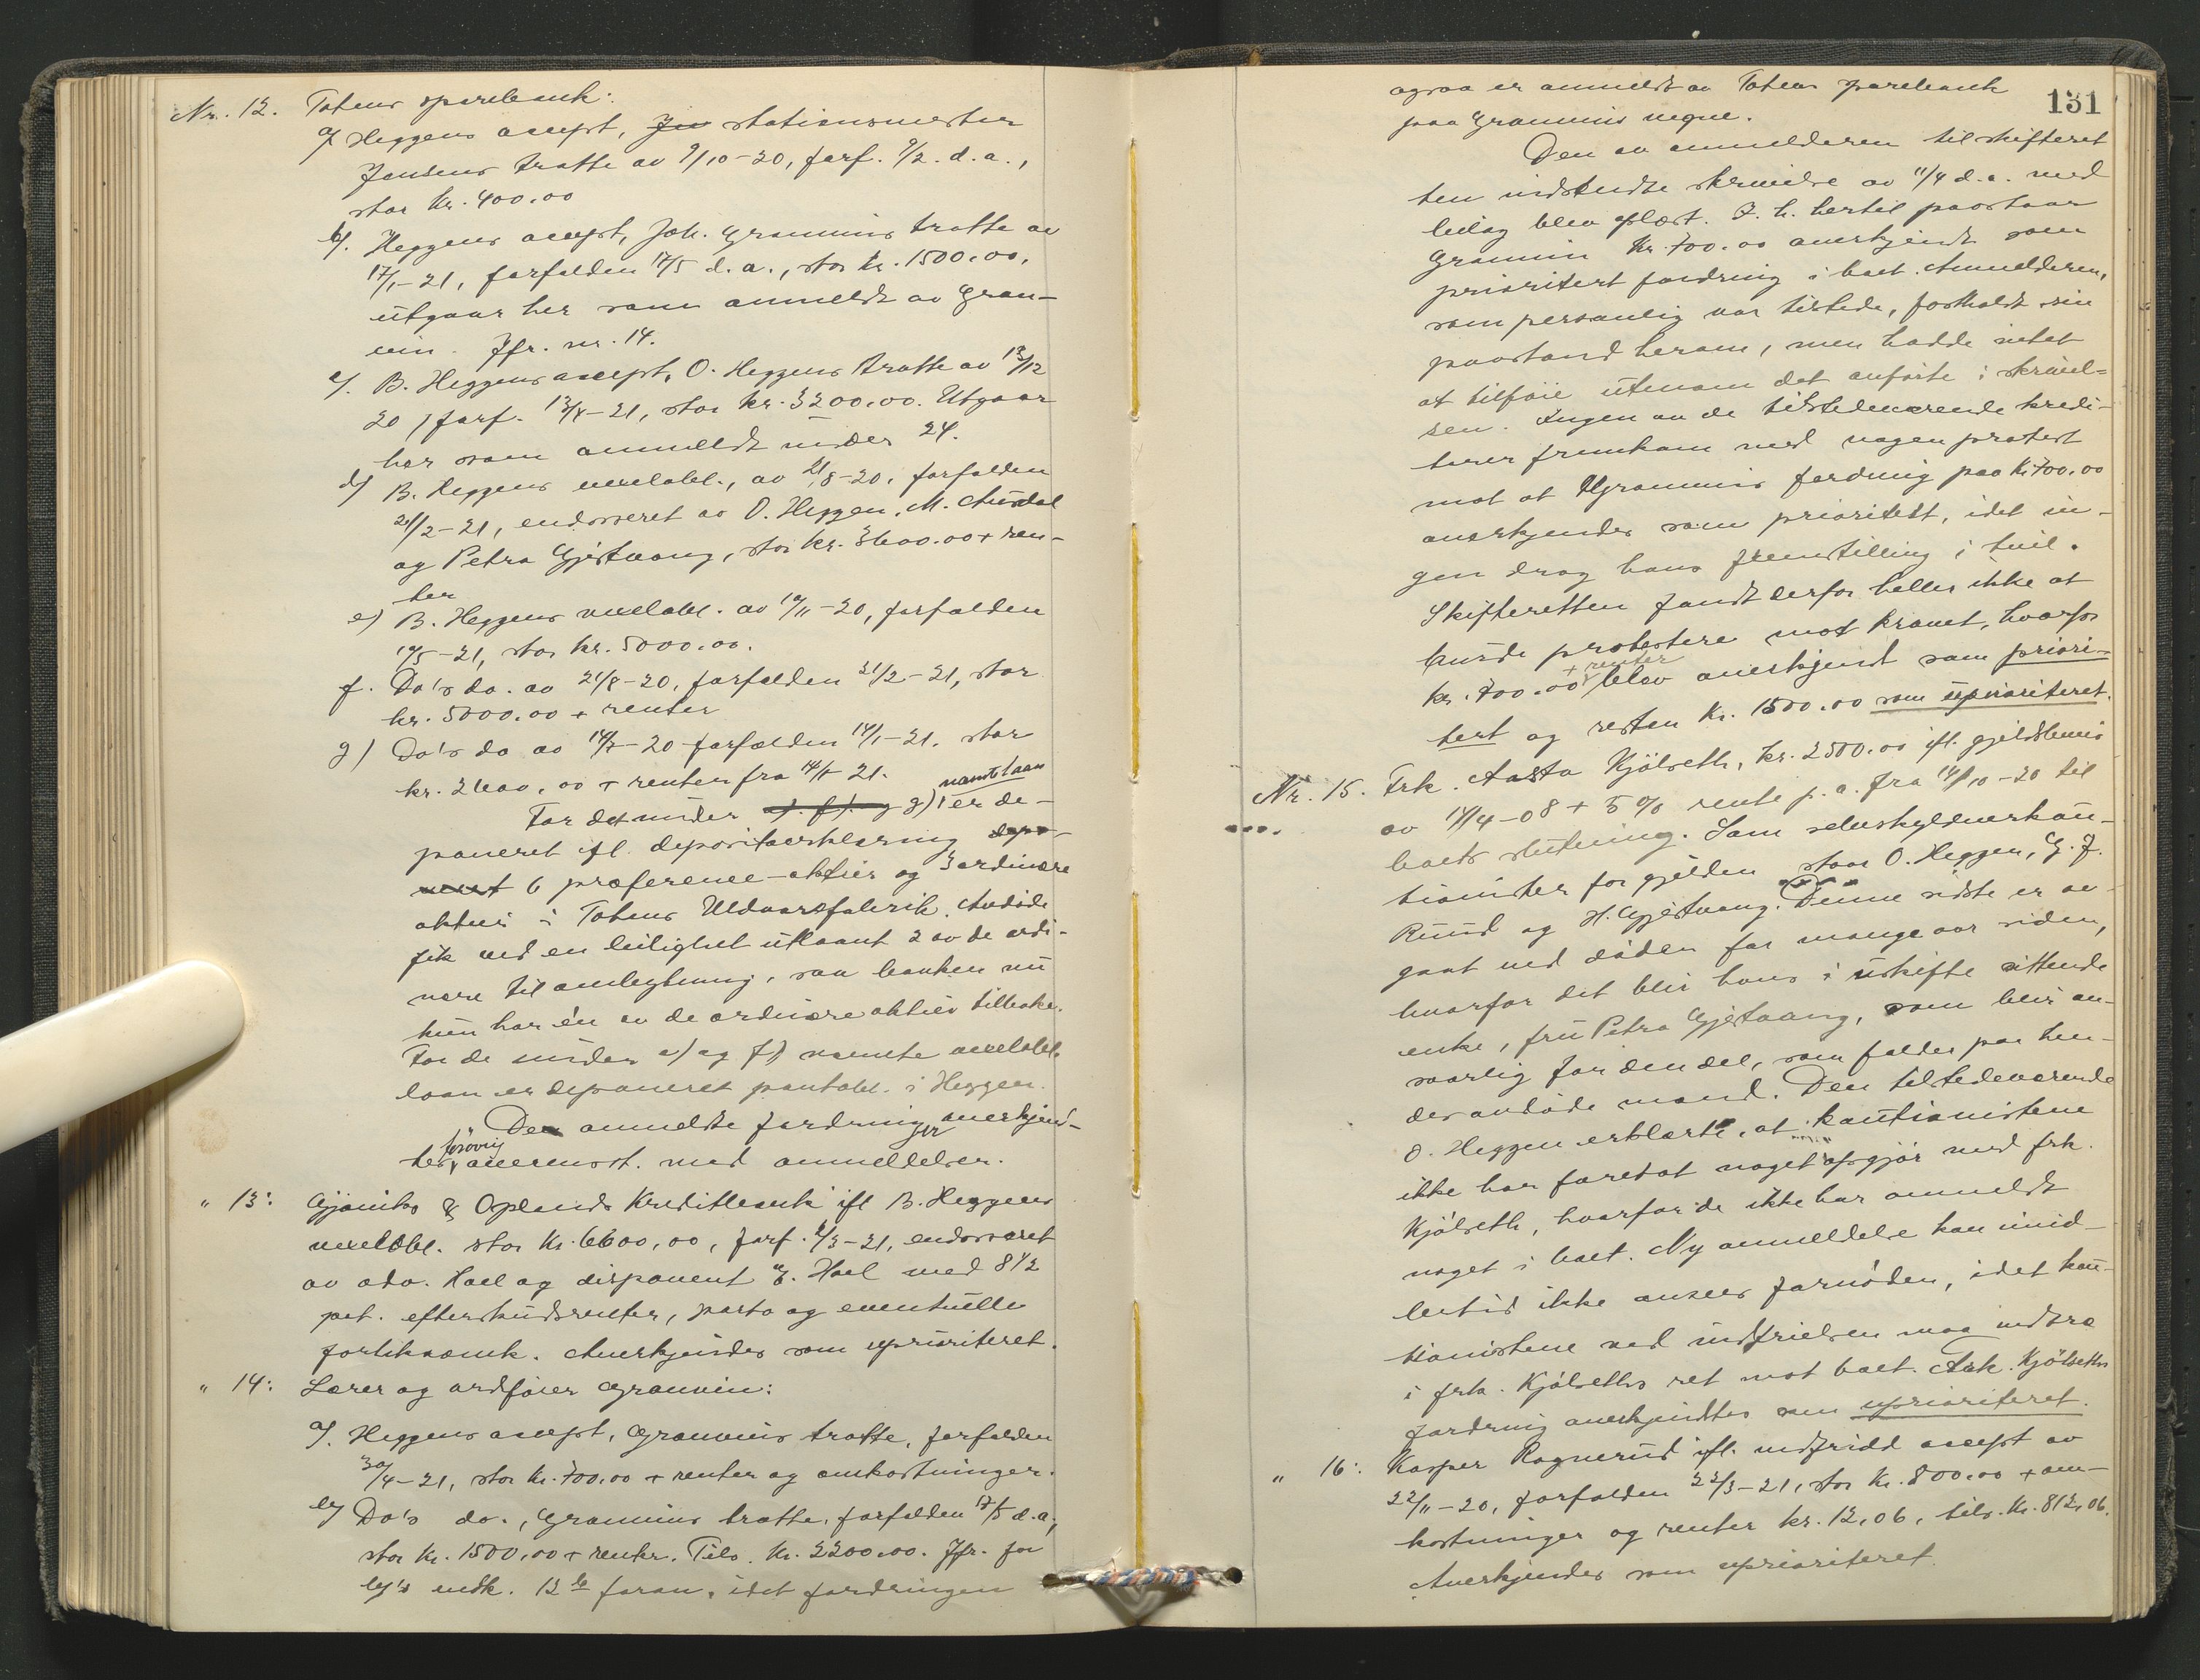 Nr. 12. Totens sparebank:
a/ Heggens accept, stationsmester
Jensens tratte av 9/10-20, forf. 9/2. d. a.,
stor kr. 400.00
b/. Heggens accept, Joh. Grannins tratte av
17/1-21, forfalden 17/5 d. a., stor kr. 1500.00,
utgaar her som anmeldt av Gran-
nin. Jfr. nr. 14.
c/. B. Heggens accept, O. Heggens tratte av 13/12
20, forf. 13/4-21, stor kr. 3200.00. Utgaar
her som anmeldt under 24.
d/ B. Heggens vexelobl., av 21/8-20, forfalden
21/2-21, endosseret av O. Heggen, M. Aurdal
og Petra Gjestvang, stor kr. 3600.00 + ren-
ter
e) B. Heggens vexelobl. av 19/11-20, forfalden
19/5-21, stor kr. 5000.00.
f. Do's do. av 21/8-20, forfalden 21/2-21, stor
kr. 5000.00 + renter
g) Do's do av 14/7-20 forfalden 14/1-21. stor
kr. 2600,00 + renter fra 14/1 21.
For det under g) nævnte laan er de-
poneret ifl. depositoerklæring
6 præference-aktier og 3 ordinære
aktier i Totens Uldvarefabrik. Avdøde
fik ved en leilighet utlaant 2 av de ordi-
nære til ombytning, saa banken nu
kun har én av de ordinære aktier tilbake.
For de under e) og f) nævnte vexelobl.
laan er deponeret pantobl. i Heggen.
Den anmeldte fordringer anerkjend-
tes forøvrig overensst. med anmeldelsen.
" 13: Gjøviks & Oplands Kreditbank ifl B. Heggens
vexelobl. stor kr. 6600,00, forf. 4/3-21, endosseret
av adv. Hoel og disponent E. Hoel med 8 1/2
pct. efterskudsrenter, porto og eventuelle
forliksomk. Anerkjendes som uprioriteret.
" 14: Lærer og ordfører Grannin:
a/. Heggens accept, Grannins tratte, forfalden
30/4-21, stor kr. 700.00 + renter og omkostninger.
b/ Do's do., Grannins tratte, forfalden 17/5 d.a.,
stor kr. 1500,00 + renter. Tils. kr. 2200.00. Jfr. for
b/'s vedk. 12 b foran, idet fordringen
131
ogsaa er anmeldt av Totens sparebank
paa Grannins vegne.
Den av anmelderen til skifteret
ten indsendte skrivelse av 11/4 d.a. med
bilag blev oplæst. I h. hertil paastaar
Grannin kr. 700.00 anerkjendt som
prioritert fordring i boet. Anmelderen,
som personlig var tilstede, fastholdt sin
paastand herom, men hadde intet
at tilføie utenom det anførte i skrivel-
sen. Ingen av de tilstedeværende kredi-
torer fremkom med nogen protest
mot at Grannins fordring paa kr. 700.00
anerkjendes som prioritert, idet in-
gen drog hans fremstilling i tvil.
Skifteretten fandt derfor heller ikke at
burde protestere mot kravet, hvorfor
kr. 700.00 + renter blev anerkjendt som priori-
tert og resten kr. 1500.00 som uprioriteret.
Nr. 15. Frk. Aasta Kjølseth, kr. 2500.00 ifl. gjeldsbevis
av 14/4-08 + 5 % rente p. a. fra 14/10-20 til
boets slutning. Som selvskyldnerkau-
tionister for gjelden staar O. Heggen, G. J.
Ruud og H. Gjestvang. Denne sidste er av-
gaat ved døden for mange aar siden,
hvorfor det blir hans i uskifte sittende
enke, fru Petra Gjestvang, som blir an-
svarlig for den del, som falder paa hen-
des avdøde mand. Den tilstedeværende
O. Heggen erklærte, at kautionistene
ikke har foretat noget opgjør med frk.
Kjølseth, hvorfor de ikke har anmeldt
noget i boet. Ny anmeldelse kan imid-
lertid ikke ansees fornøden, idet kau-
tionistene ved indfrielsen maa indtræ
i frk. Kjølseths ret mot boet. Frk. Kjølseths
fordring anerkjendtes som uprioriteret.
" 16: Kasper Rognerud ifl. indfridd accept av
22/11-20, forfalden 22/3-21, stor kr. 800.00 + om-
kostninger og renter kr. 12,06, tils. kr. 812,06.
Anerkjendes som uprioriteret.